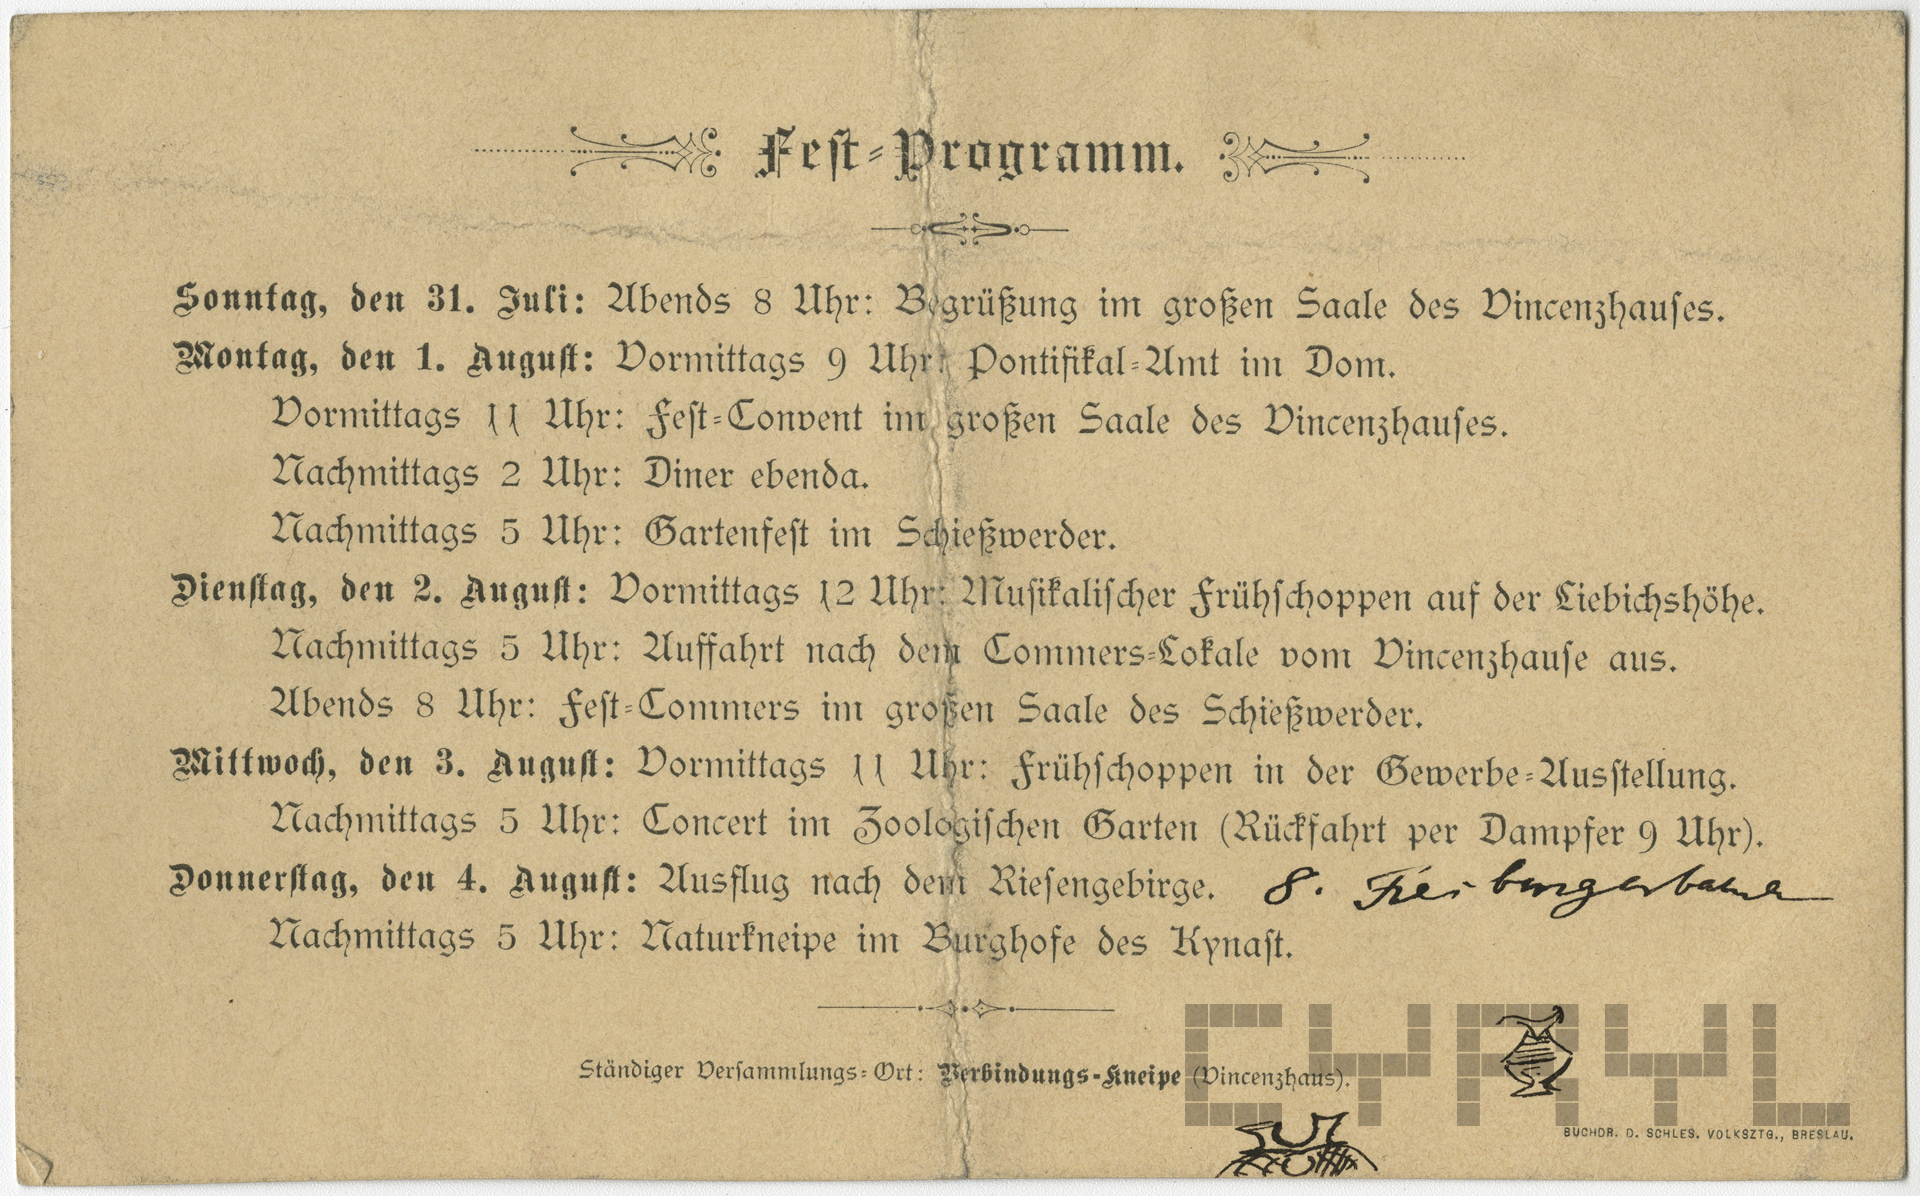 Fest-Programm.
Sonntag, den 31. Juli: Abends 8 Uhr: Begrüßung im großen Saale des Vincenzhauses.
Montag, den 1. August: Vormittags 9 Uhr: Pontifikal-Amt im Dom.
Vormittags 11 Uhr: Fest-Convent im großen Saale des Vincenzhauses.
Nachmittags 2 Uhr: Diner ebenda.
Nachmittags 5 Uhr: Gartenfest im Schießwerder.
Dienstag, den 2. August: Vormittags 12 Uhr: Musikalischer Frühschoppen auf der Liebichshöhe.
Nachmittags 5 Uhr: Auffahrt nach dem Commers-Lokale vom Vincenzhause aus.
Abends 8 Uhr: Fest-Commers im großen Saale des Schießwerder.
Mittwoch, den 3. August: Vormittags 11 Uhr: Frühschoppen in der Gewerbe-Ausstellung.
Nachmittags 5 Uhr: Concert im Zoologischen Garten (Rückfahrt per Dampfer 9 Uhr).
Donnerstag, den 4. August: Ausflug nach dem Riesengebirge. 8. Freiburgerbahn
Nachmittags 5 Uhr: Naturkneipe im Burghofe des Kynast.
Ständiger Versammlungs-Ort: Verbindungs-Kneipe (Vincenzhaus).
CYRYL
BUCHDR. D. SCHLES. VOLKSZTG., BRESLAU.